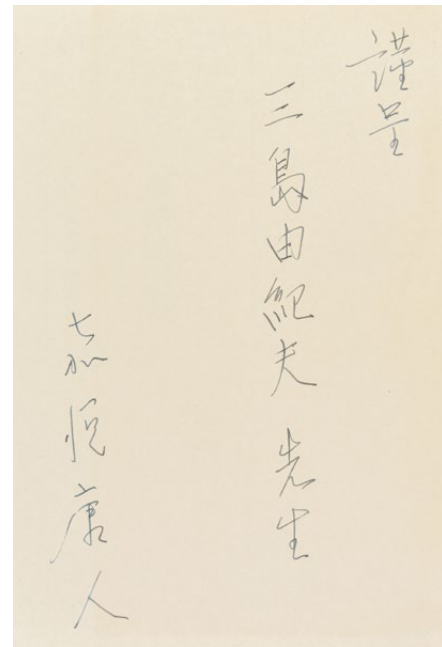 謹呈
三島由紀夫 先生
嘉悦康人